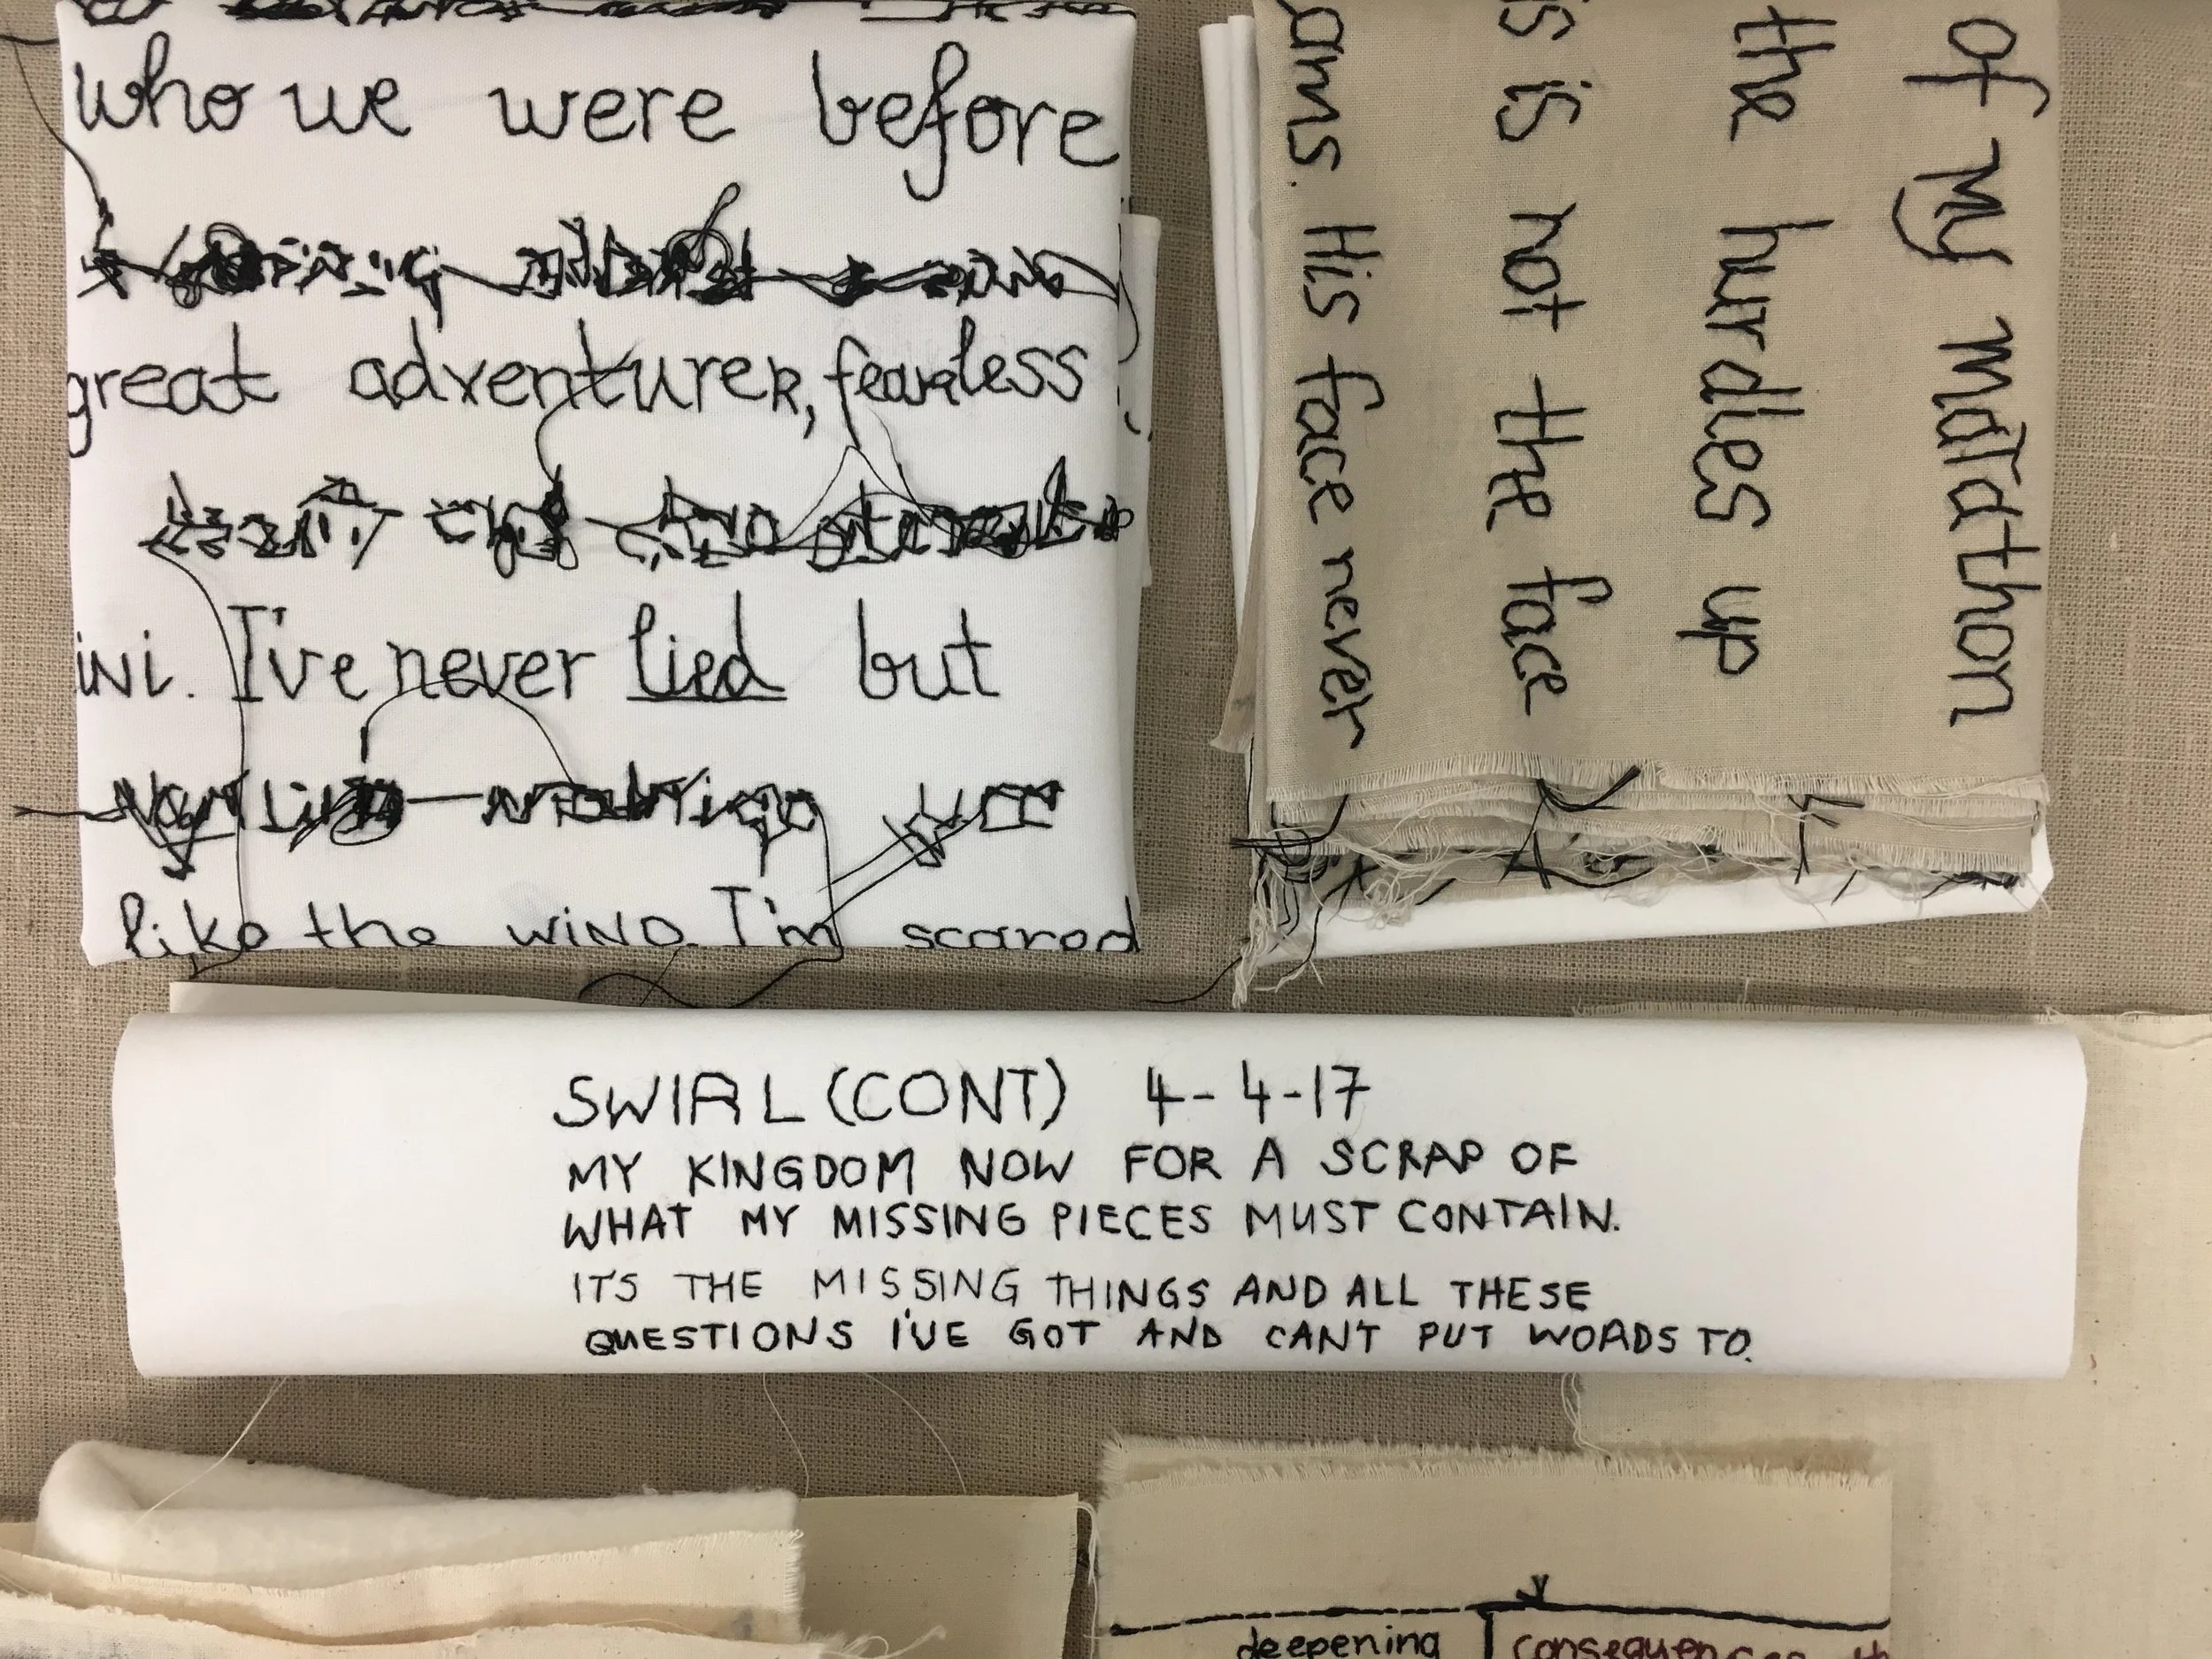 who we were before
great adventurer, fearless
ini. I've never lied but
like the wind. I'm scared
of my marathon
the hurdles up
is is not the face
ams. His face never
SWIRL (CONT) 4-4-17
MY KINGDOM NOW FOR A SCRAP OF
WHAT MY MISSING PIECES MUST CONTAIN.
IT'S THE MISSING THINGS AND ALL THESE
QUESTIONS I'VE GOT AND CAN'T PUT WORDS TO.
deepening consequences